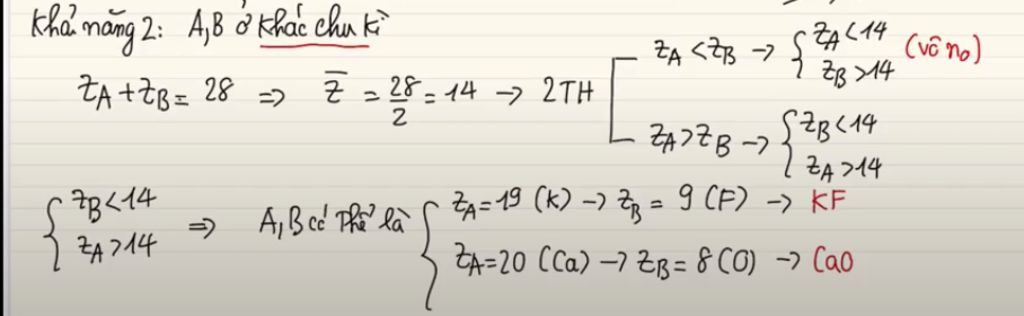 Khả năng 2: A,B ở khác chu kì
Z_A + Z_B = 28 => Z̅ = 28/2 = 14 → 2TH
Z_A < Z_B → { Z_A < 14
Z_B > 14 (vô n₀)
Z_A > Z_B → { Z_B < 14
Z_A > 14
{ Z_B < 14
Z_A > 14 => A,B có thể là
{ Z_A = 19 (K) → Z_B = 9 (F) → KF
Z_A = 20 (Ca) → Z_B = 8 (O) → CaO